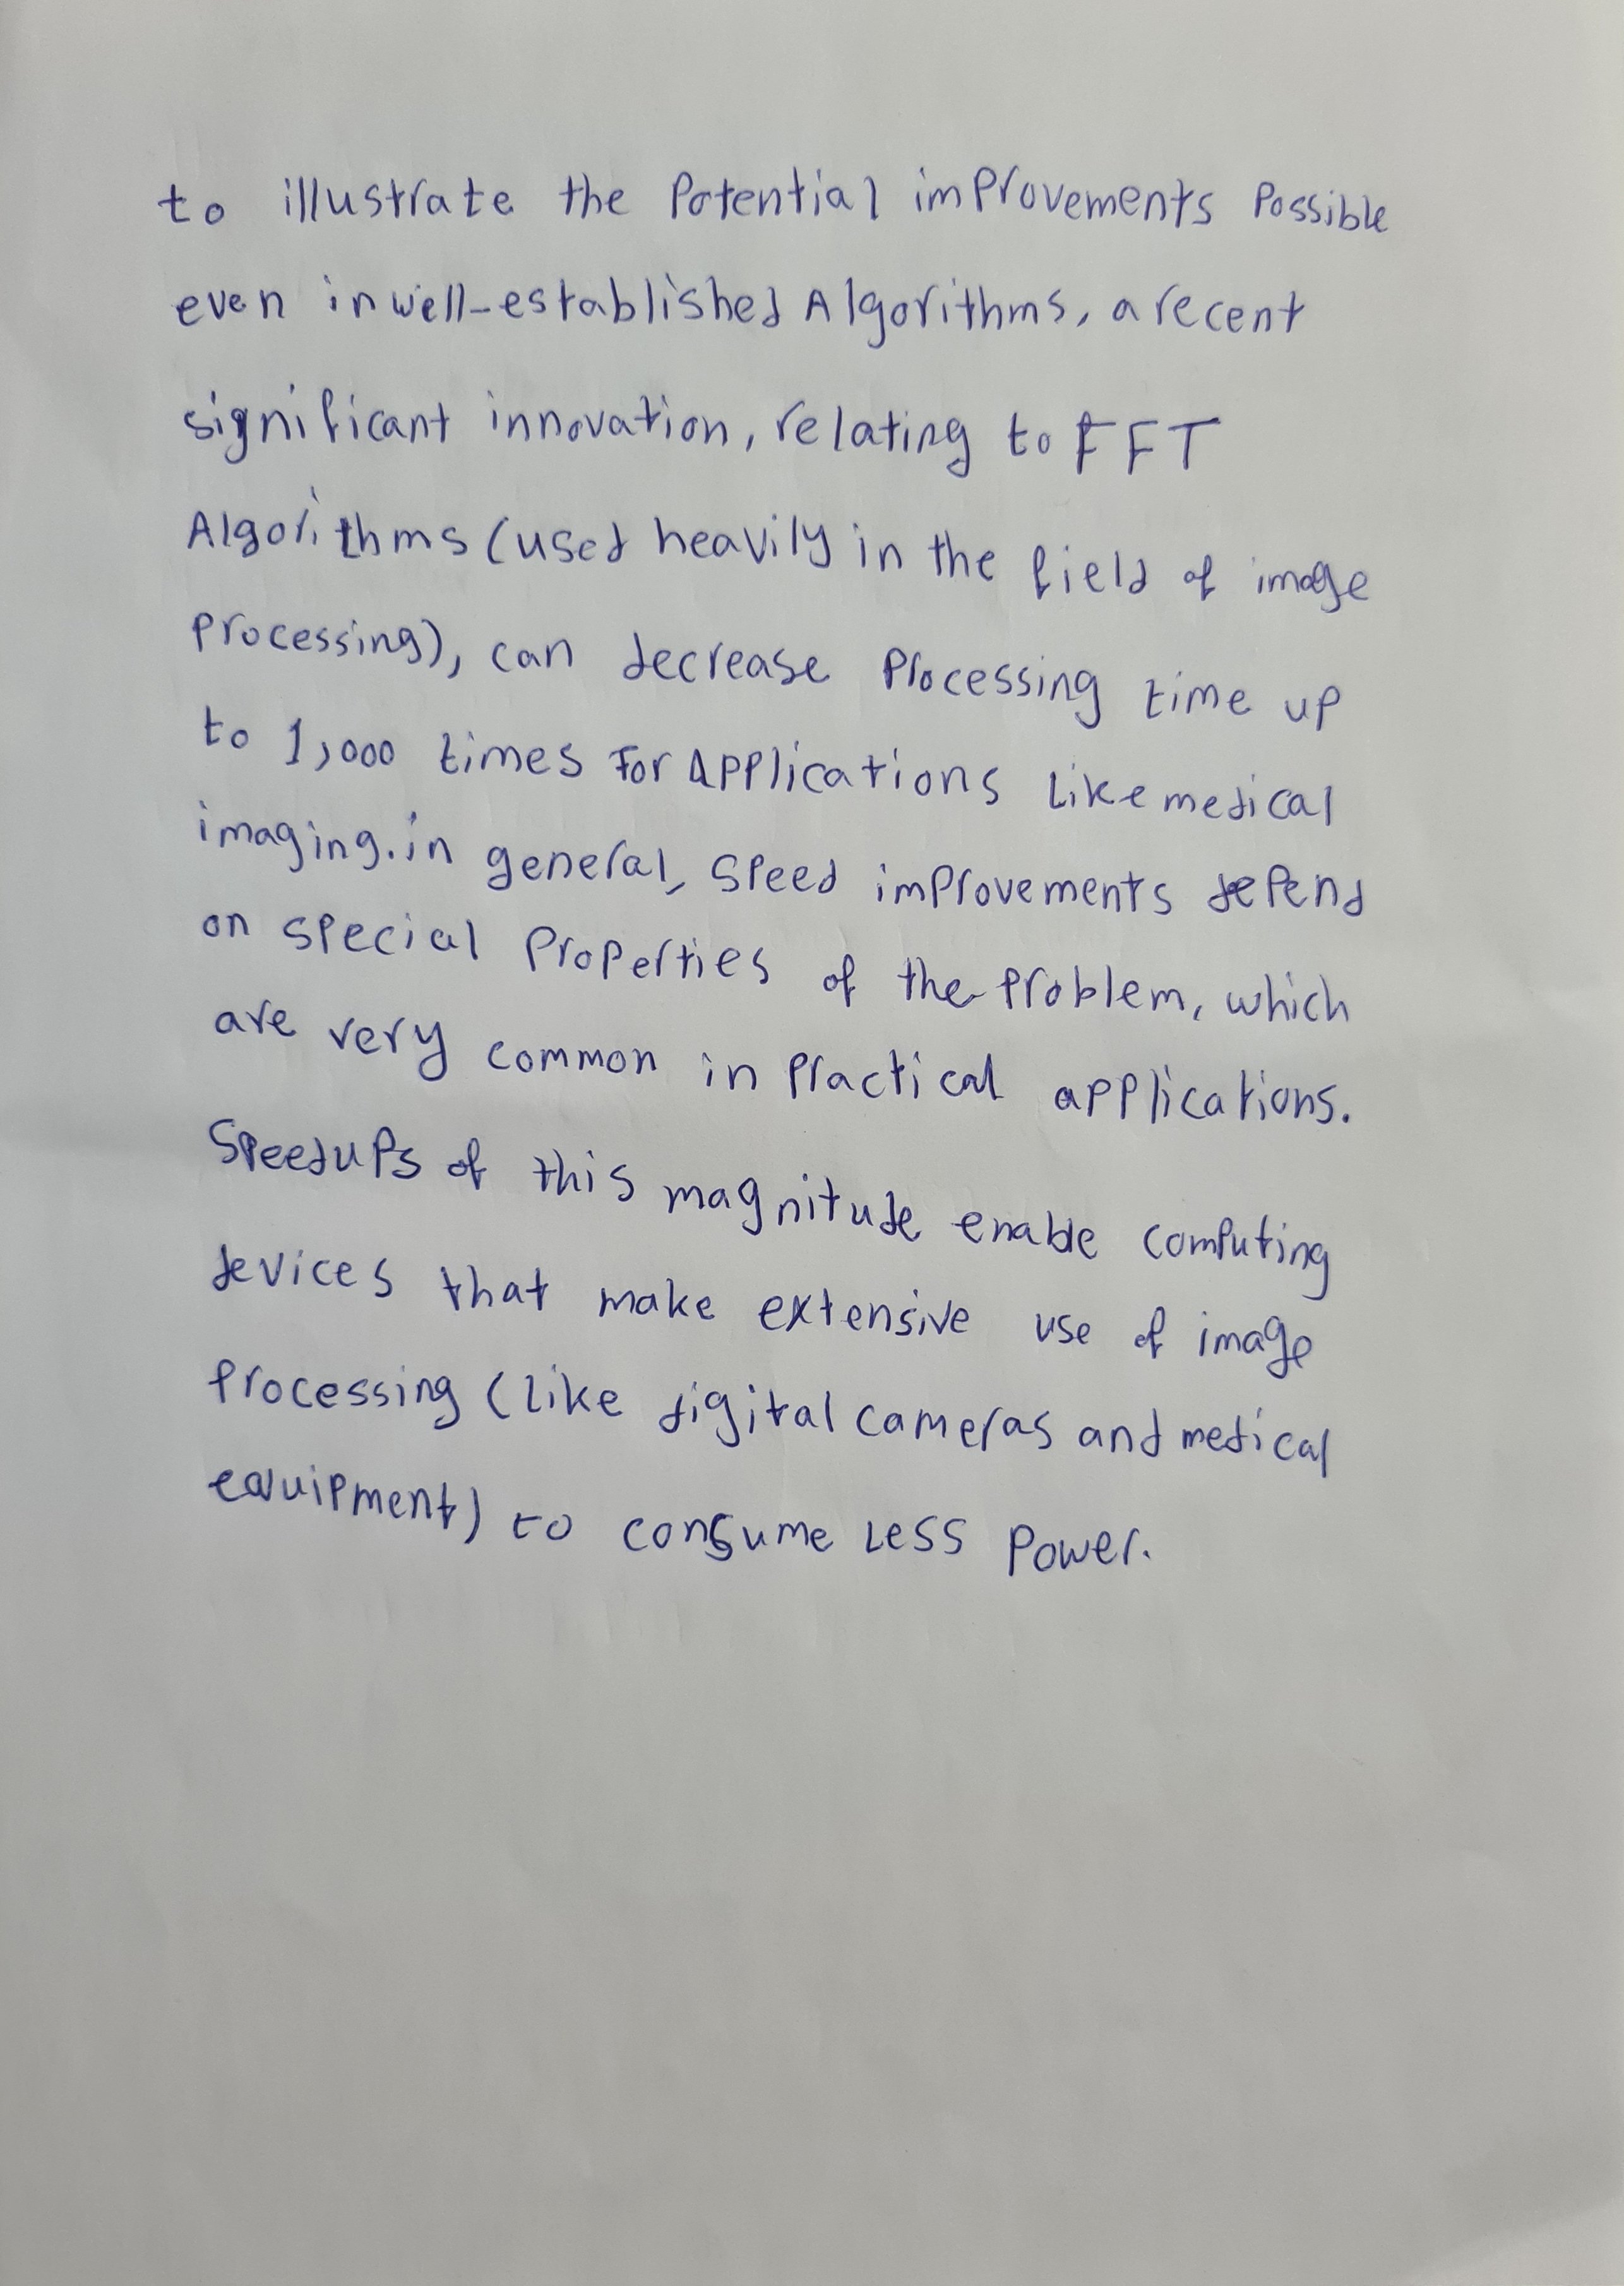 to illustrate the Potential improvements Possible
even in well-established Algorithms, a recent
significant innovation, relating to FFT
Algorithms (used heavily in the field of image
processing), can decrease Processing time up
to 1,000 times For Applications Like medical
imaging. in general, speed improvements depend
on special Properties of the problem, which
are very common in Practical applications.
Speedups of this magnitude enable computing
devices that make extensive use of image
Processing (like digital cameras and medical
equipment) to consume Less Power.